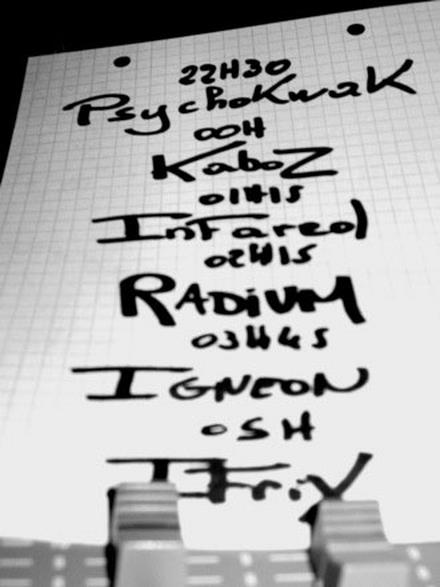 22H30
PsychoKwaK
00H
KaboZ
01H15
Infared
02H15
RADiUM
03H45
IGNEON
05H